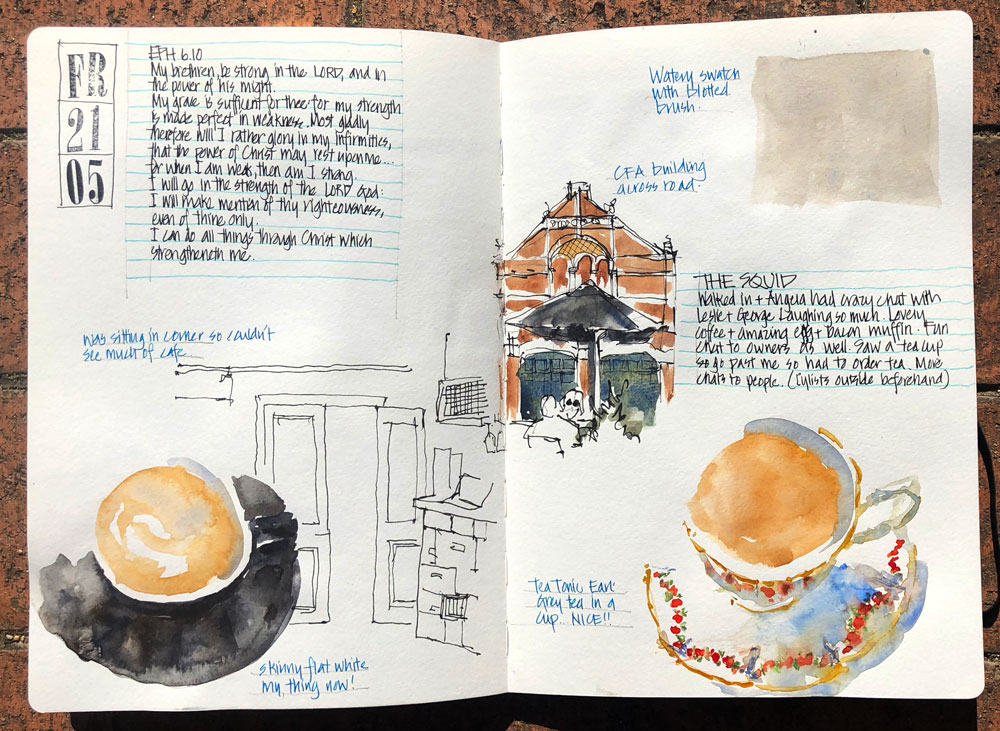 FR
21
05
EPH 6.10
My brethren, be strong in the LORD, and in
the power of his might.
My grace is sufficent for thee: for my strength
is made perfect in weakness. Most gladly
therefore will I rather glory in my infirmities,
that the power of Christ may rest upon me...
for when I am weak, then am I strong.
I will go in the strength of the LORD God:
I will make mention of thy righteousness,
even of thine only.
I can do all things through Christ which
strengtheneth me.
Was sitting in corner so couldn't
see much of cafe
skinny flat white
my thing now!
Watery swatch
with blotted
brush.
CFA building
across road.
THE SQUID
Walked in + Angela had crazy chat with
Leslie + George. Laughing so much. Lovely
coffee + amazing egg + bacon muffin. Fun
chat to owners as well. Saw a tea cup
go past me so had to order tea. More
chats to people. (Cylists outside beforehand)
Tea Tonic Earl
Grey tea in a
cup... NICE!!